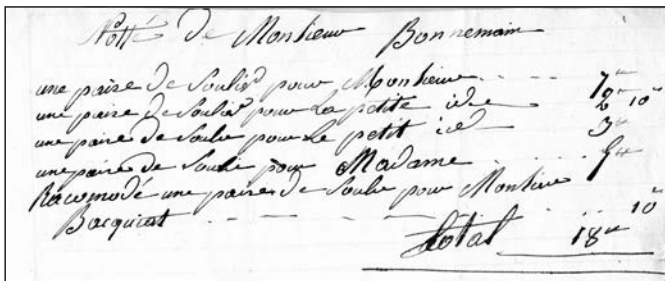 Notté de Monsieur Bonnemain
une paire de Soulié pour Monsieur 7#
une paire de Soulié pour La petite 2# 10s
une paire de Soulie pour Le petit 3#
une paire de Soulie pour Madame 5#
Racomodé une paire de Soulie pour Monsieur
10s
total 18#